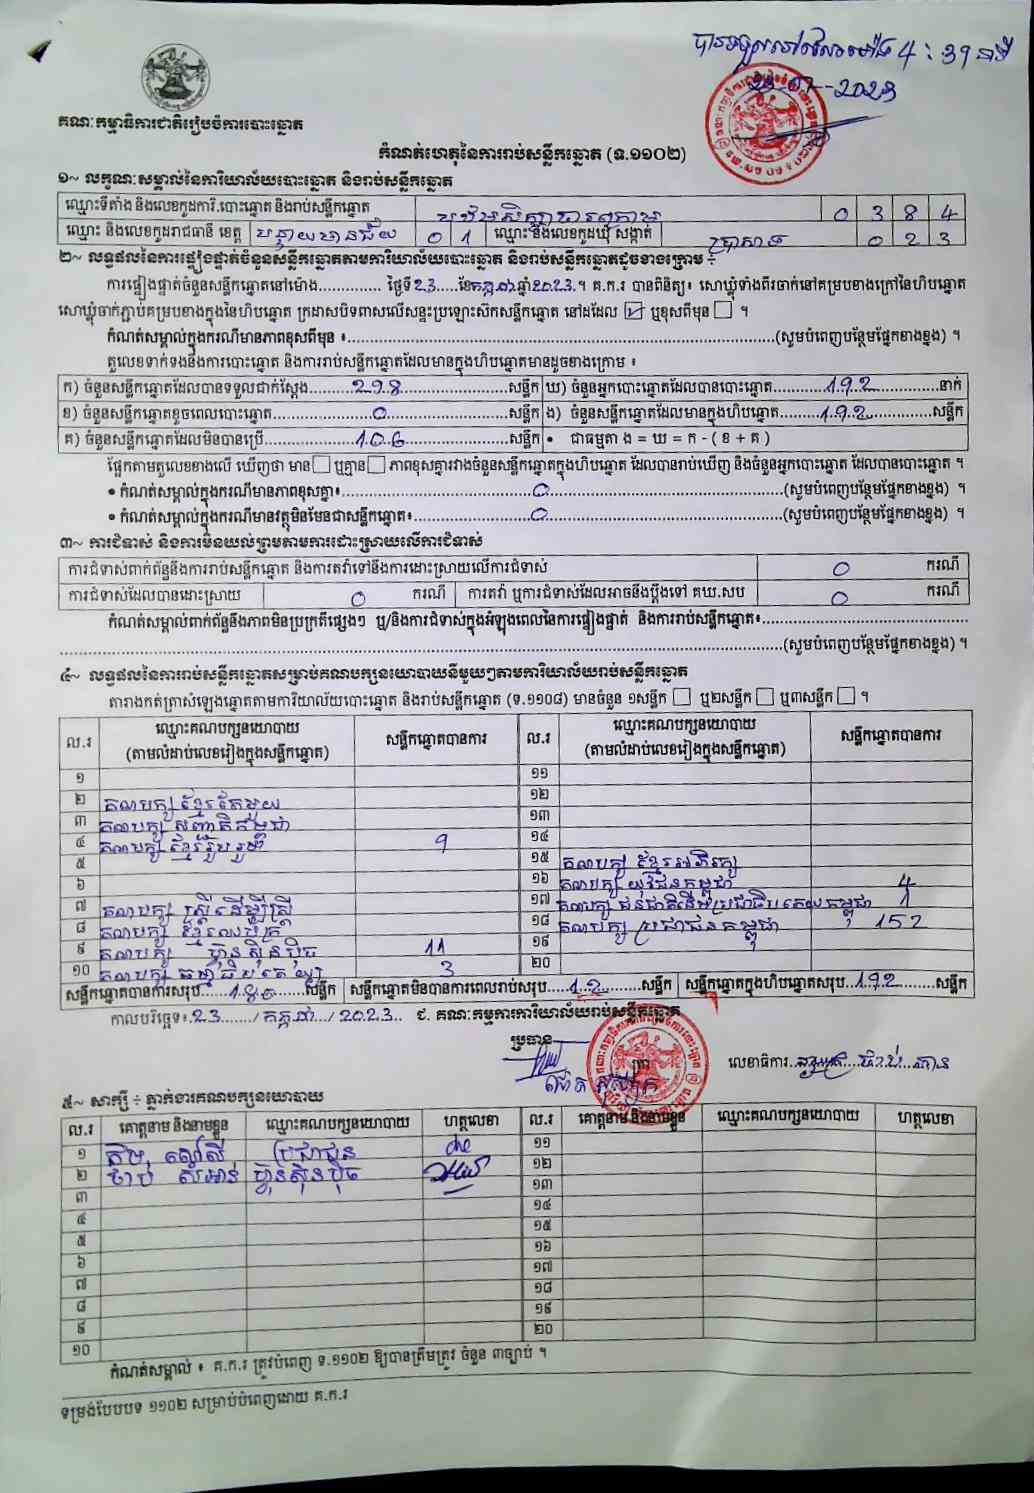 បានទទួលនៅវេលាម៉ោង 4 : 39 នាទី
23-07-2023
គណៈកម្មាធិការជាតិរៀបចំការបោះឆ្នោត
កំណត់ហេតុនៃការរាប់សន្លឹកឆ្នោត (ទ.១១០២)
១~ លក្ខណៈសម្គាល់នៃការិយាល័យបោះឆ្នោត និងរាប់សន្លឹកឆ្នោត
ឈ្មោះទីតាំង និងលេខកូដការិ.បោះឆ្នោត និងរាប់សន្លឹកឆ្នោត 0 3 8 4
ឈ្មោះ និងលេខកូដរាជធានី ខេត្ត បន្ទាយមានជ័យ 0 1 ឈ្មោះ និងលេខកូដឃុំ សង្កាត់ ប្រាសាទ 0 2 3
២~ លទ្ធផលនៃការផ្ទៀងផ្ទាត់ចំនួនសន្លឹកឆ្នោតតាមការិយាល័យបោះឆ្នោត និងរាប់សន្លឹកឆ្នោតដូចខាងក្រោម ÷
ការផ្ទៀងផ្ទាត់ចំនួនសន្លឹកឆ្នោតនៅម៉ោង.............. ថ្ងៃទី23.....ខែកក្កដាឆ្នាំ2023.។ គ.ក.រ បានពិនិត្យ៖ សោឃ្លុំទាំងពីរចាក់នៅគម្របខាងក្រៅនៃហិបឆ្នោត
សោឃ្លុំចាក់ភ្ជាប់គម្របខាងក្នុងនៃហិបឆ្នោត ក្រដាសបិទពាសលើសន្ទះប្រឡោះស៊កសន្លឹកឆ្នោត នៅដដែល ☑ ឬខុសពីមុន ☐ ។
កំណត់សម្គាល់ក្នុងករណីមានភាពខុសពីមុន ៖......(សូមបំពេញបន្ថែមផ្នែកខាងខ្នង) ។
តួលេខទាក់ទងនឹងការបោះឆ្នោត និងការរាប់សន្លឹកឆ្នោតដែលមានក្នុងហិបឆ្នោតមានដូចខាងក្រោម ៖
ក) ចំនួនសន្លឹកឆ្នោតដែលបានទទួលជាក់ស្តែង......298......សន្លឹក ឃ) ចំនួនអ្នកបោះឆ្នោតដែលបានបោះឆ្នោត......192......នាក់
ខ) ចំនួនសន្លឹកឆ្នោតខូចពេលបោះឆ្នោត......0......សន្លឹក ង) ចំនួនសន្លឹកឆ្នោតដែលមានក្នុងហិបឆ្នោត......192......សន្លឹក
គ) ចំនួនសន្លឹកឆ្នោតដែលមិនបានប្រើ......106......សន្លឹក • ជាធម្មតា ង = ឃ = ក - ( ខ + គ )
ផ្អែកតាមតួលេខខាងលើ ឃើញថា មាន☐ ឬគ្មាន☐ ភាពខុសគ្នារវាងចំនួនសន្លឹកឆ្នោតក្នុងហិបឆ្នោត ដែលបានរាប់ឃើញ និងចំនួនអ្នកបោះឆ្នោត ដែលបានបោះឆ្នោត ។
• កំណត់សម្គាល់ក្នុងករណីមានភាពខុសគ្នា៖......0......(សូមបំពេញបន្ថែមផ្នែកខាងខ្នង) ។
• កំណត់សម្គាល់ក្នុងករណីមានវត្ថុមិនមែនជាសន្លឹកឆ្នោត៖......0......(សូមបំពេញបន្ថែមផ្នែកខាងខ្នង) ។
៣~ ការជំទាស់ និងការមិនយល់ព្រមតាមការដោះស្រាយលើការជំទាស់
ការជំទាស់ពាក់ព័ន្ធនឹងការរាប់សន្លឹកឆ្នោត និងការតវ៉ាទៅនឹងការដោះស្រាយលើការជំទាស់ 0 ករណី
ការជំទាស់ដែលបានដោះស្រាយ 0 ករណី ការតវ៉ា ឬការជំទាស់ដែលអាចនឹងប្តឹងទៅ គឃ.សប 0 ករណី
កំណត់សម្គាល់ពាក់ព័ន្ធនឹងភាពមិនប្រក្រតីផ្សេងៗ ឬ/និងការជំទាស់ក្នុងអំឡុងពេលនៃការផ្ទៀងផ្ទាត់ និងការរាប់សន្លឹកឆ្នោត៖......
......(សូមបំពេញបន្ថែមផ្នែកខាងខ្នង) ។
៤~ លទ្ធផលនៃការរាប់សន្លឹកឆ្នោតសម្រាប់គណបក្សនយោបាយនីមួយៗតាមការិយាល័យរាប់សន្លឹកឆ្នោត
តារាងកត់ត្រាសំឡេងឆ្នោតតាមការិយាល័យបោះឆ្នោត និងរាប់សន្លឹកឆ្នោត (ទ.១១០៨) មានចំនួន ១សន្លឹក ☐ ឬ២សន្លឹក ☐ ឬ៣សន្លឹក ☐ ។
ល.រ ឈ្មោះគណបក្សនយោបាយ (តាមលំដាប់លេខរៀងក្នុងសន្លឹកឆ្នោត) សន្លឹកឆ្នោតបានការ ល.រ ឈ្មោះគណបក្សនយោបាយ (តាមលំដាប់លេខរៀងក្នុងសន្លឹកឆ្នោត) សន្លឹកឆ្នោតបានការ
១ ១១
២ គណបក្ស ខ្មែរតែមួយ ១២
៣ គណបក្ស សញ្ជាតិកម្ពុជា ១៣
៤ គណបក្ស ខ្មែររួបរួម 9 ១៤
៥ ១៥ គណបក្ស ខ្មែរអភិរក្ស
៦ ១៦ គណបក្ស យុវជនកម្ពុជា 4
៧ គណបក្ស ស្ត្រីដើម្បីស្ត្រី ១៧ គណបក្ស ជនជាតិដើមប្រជាធិបតេយ្យកម្ពុជា 1
៨ គណបក្ស ១៨ គណបក្ស ប្រជាជនកម្ពុជា 152
៩ គណបក្ស ហ្វ៊ុនស៊ិនប៉ិច 11 ១៩
១០ គណបក្ស ធម្មាធិបតេយ្យ 3 ២០
សន្លឹកឆ្នោតបានការសរុប......180......សន្លឹក សន្លឹកឆ្នោតមិនបានការពេលរាប់សរុប......12......សន្លឹក សន្លឹកឆ្នោតក្នុងហិបឆ្នោតសរុប..192......សន្លឹក
កាលបរិច្ឆេទ៖.23....../ កក្កដា.../ 2023.. ៩. គណៈកម្មការការិយាល័យរាប់សន្លឹកឆ្នោត
ប្រធាន
លេខាធិការ
៥~ សាក្សី ÷ ភ្នាក់ងារគណបក្សនយោបាយ
ល.រ គោត្តនាម និងនាមខ្លួន ឈ្មោះគណបក្សនយោបាយ ហត្ថលេខា ល.រ គោត្តនាម និងនាមខ្លួន ឈ្មោះគណបក្សនយោបាយ ហត្ថលេខា
១ ប្រជាជន ១១
២ ចាប សំអាន់ ហ្វ៊ុនស៊ិនប៉ិច ១២
៣ ១៣
៤ ១៤
៥ ១៥
៦ ១៦
៧ ១៧
៨ ១៨
៩ ១៩
១០ ២០
កំណត់សម្គាល់ ៖ គ.ក.រ ត្រូវបំពេញ ទ.១១០២ ឱ្យបានត្រឹមត្រូវ ចំនួន ៣ច្បាប់ ។
ទម្រង់បែបបទ ១១០២ សម្រាប់បំពេញដោយ គ.ក.រ